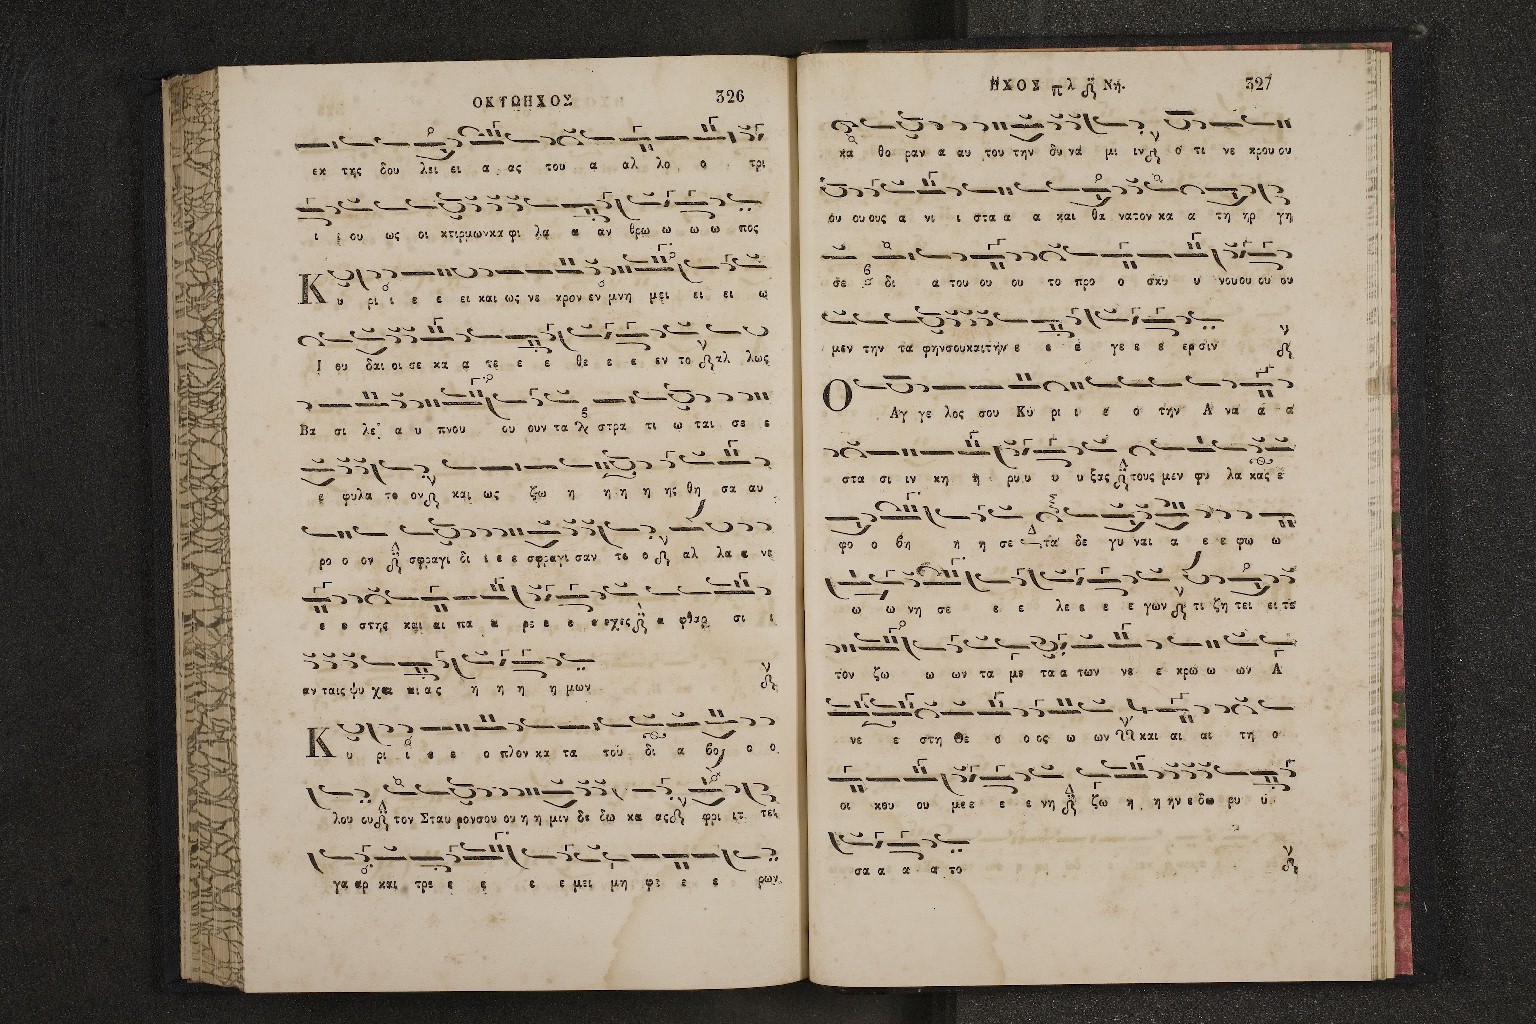 ΟΚΤΩΗΧΟΣ 326
εκ της δου λει ει α ας του α αλ λο ο τρι
ι ου ως οι κτιρμων κα φι λα α αν θρω ω ω ω πος
Κ υ ρι ι ε ε ει και ως νε κρον εν μνη μει ει ει ω
Ι ου δαι οι σε κα α τε ε ε θε ε ε εν το αλ λως
Βα σι λε α υ πνου ου ουν τα στρα τι ω ται σε ε
ε φυλα τ ον και ως ζω η η η η ης θη σα αυ
ρο ο ον σφραγι δι ι ε ε σφραγι σαν το ο αλ λα ε νε
ε ε στης και αι πα α ρε ε ε ε χες α φθαρ σι ι
αν ταις ψυ χαι αι ας η η η η μων
Κ υ ρι ι ε ε ο πλον κα τα του δι α βο ο ο
λου ου τον Σταυ ρον σου ου η η μιν δε δω κα ας φρι ιτ τει
γα αρ και τρε ε ε ε ε μει μη φε ε ε ρων
ΗΧΟΣ πλ Νή. 327
κα θο ραν α αυ του την δυ να μι ιν ο τι νε κρου ου
ου ου ους α νι ι στα α α και θα νατον κα α τη ηρ γη
σε δι α του ου ου το προ ο σκυ υ νου ου ου ου
μεν την τα φην σου και την ε ε ε γε ε ε ερ σιν
Ο Αγ γε λος σου Κυ ρι ι ε ο την Α να α α
στα σι ιν κη η ρυ υ υ υ ξας τους μεν φυ λα κας ε
φο ο βη η η σε τα δε γυ ναι α ε ε φω ω
ω ω νη σε ε ε λε ε ε ε γων τι ζη τει ει τε
τον ζω ω ων τα με τα α των νε ε κρω ω ων Α
νε ε στη Θε ο ο ος ω ων και αι αι τη ο
οι κου ου με ε ε ε νη ζω η η ην ε δω ρυ υ
σα α α α το